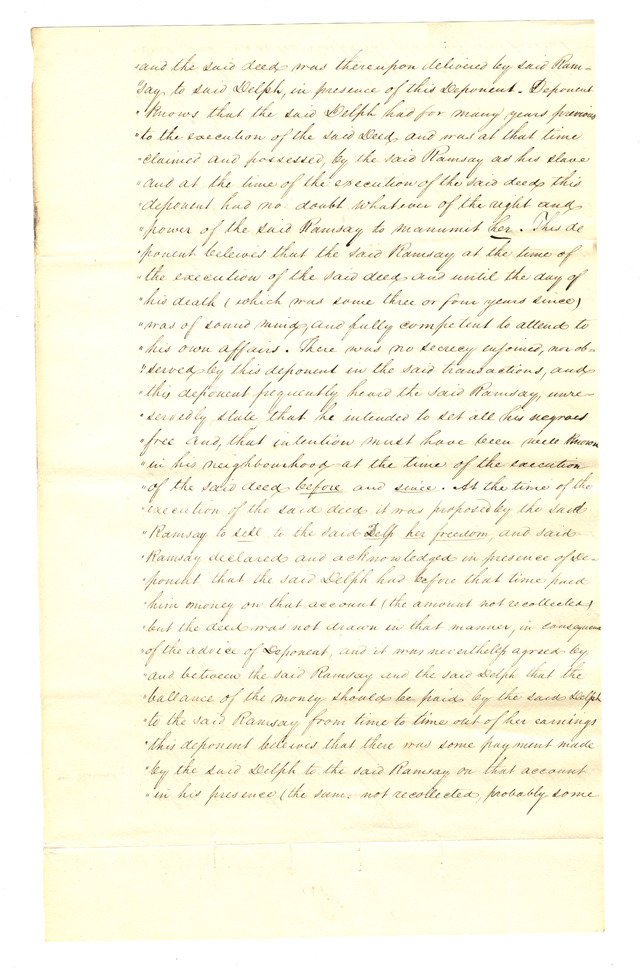 "and the said deed was thereupon delivered by said Ram-
"say to said Delph, in presence of this Deponent. Deponent
"knows that the said Delph had for many years previous
"to the execution of the said Deed and was at that time
"claimed and possessed, by the said Ramsay as his slave
"and at the time of the execution of the said deed this
"deponent had no doubt whatever of the right and
"power of the said Ramsay to manumit her. This de
"ponent beleives that the said Ramsay at the time of
"the execution of the said deed and until the day of
"his death (which was some three or four years since)
"was of sound mind, and fully competent to attend to
"his own affairs. There was no secrecy injoined, nor ob-
"served by this deponent in the said transactions, and
"this deponent frequently heard the said Ramsay, unre-
"servedly state that he intended to set all his negroes
"free and, that intention must have been well known
"in his neighbourhood at the time of the execution
"of the said deed before and since. At the time of the
"execution of the said deed it was proposed by the said
"Ramsay to sell to the said Delp her freedom, and said
"Ramsay declared and acknowledged in presence of De-
"ponent that the said Delph had before that time paid
"him money on that account (the amount not recollected)
"but the deed was not drawn in that manner, in consequence
"of the advice of Deponent, and it was nevertheless agreed by
"and between the said Ramsay and the said Delph that the
"ballance of the money should be paid by the said Delph
"to the said Ramsay from time to time out of her earnings
"this deponent beleives that there was some payment made
"by the said Delph to the said Ramsay on that account
"in his presence (the sum not recollected, probably some